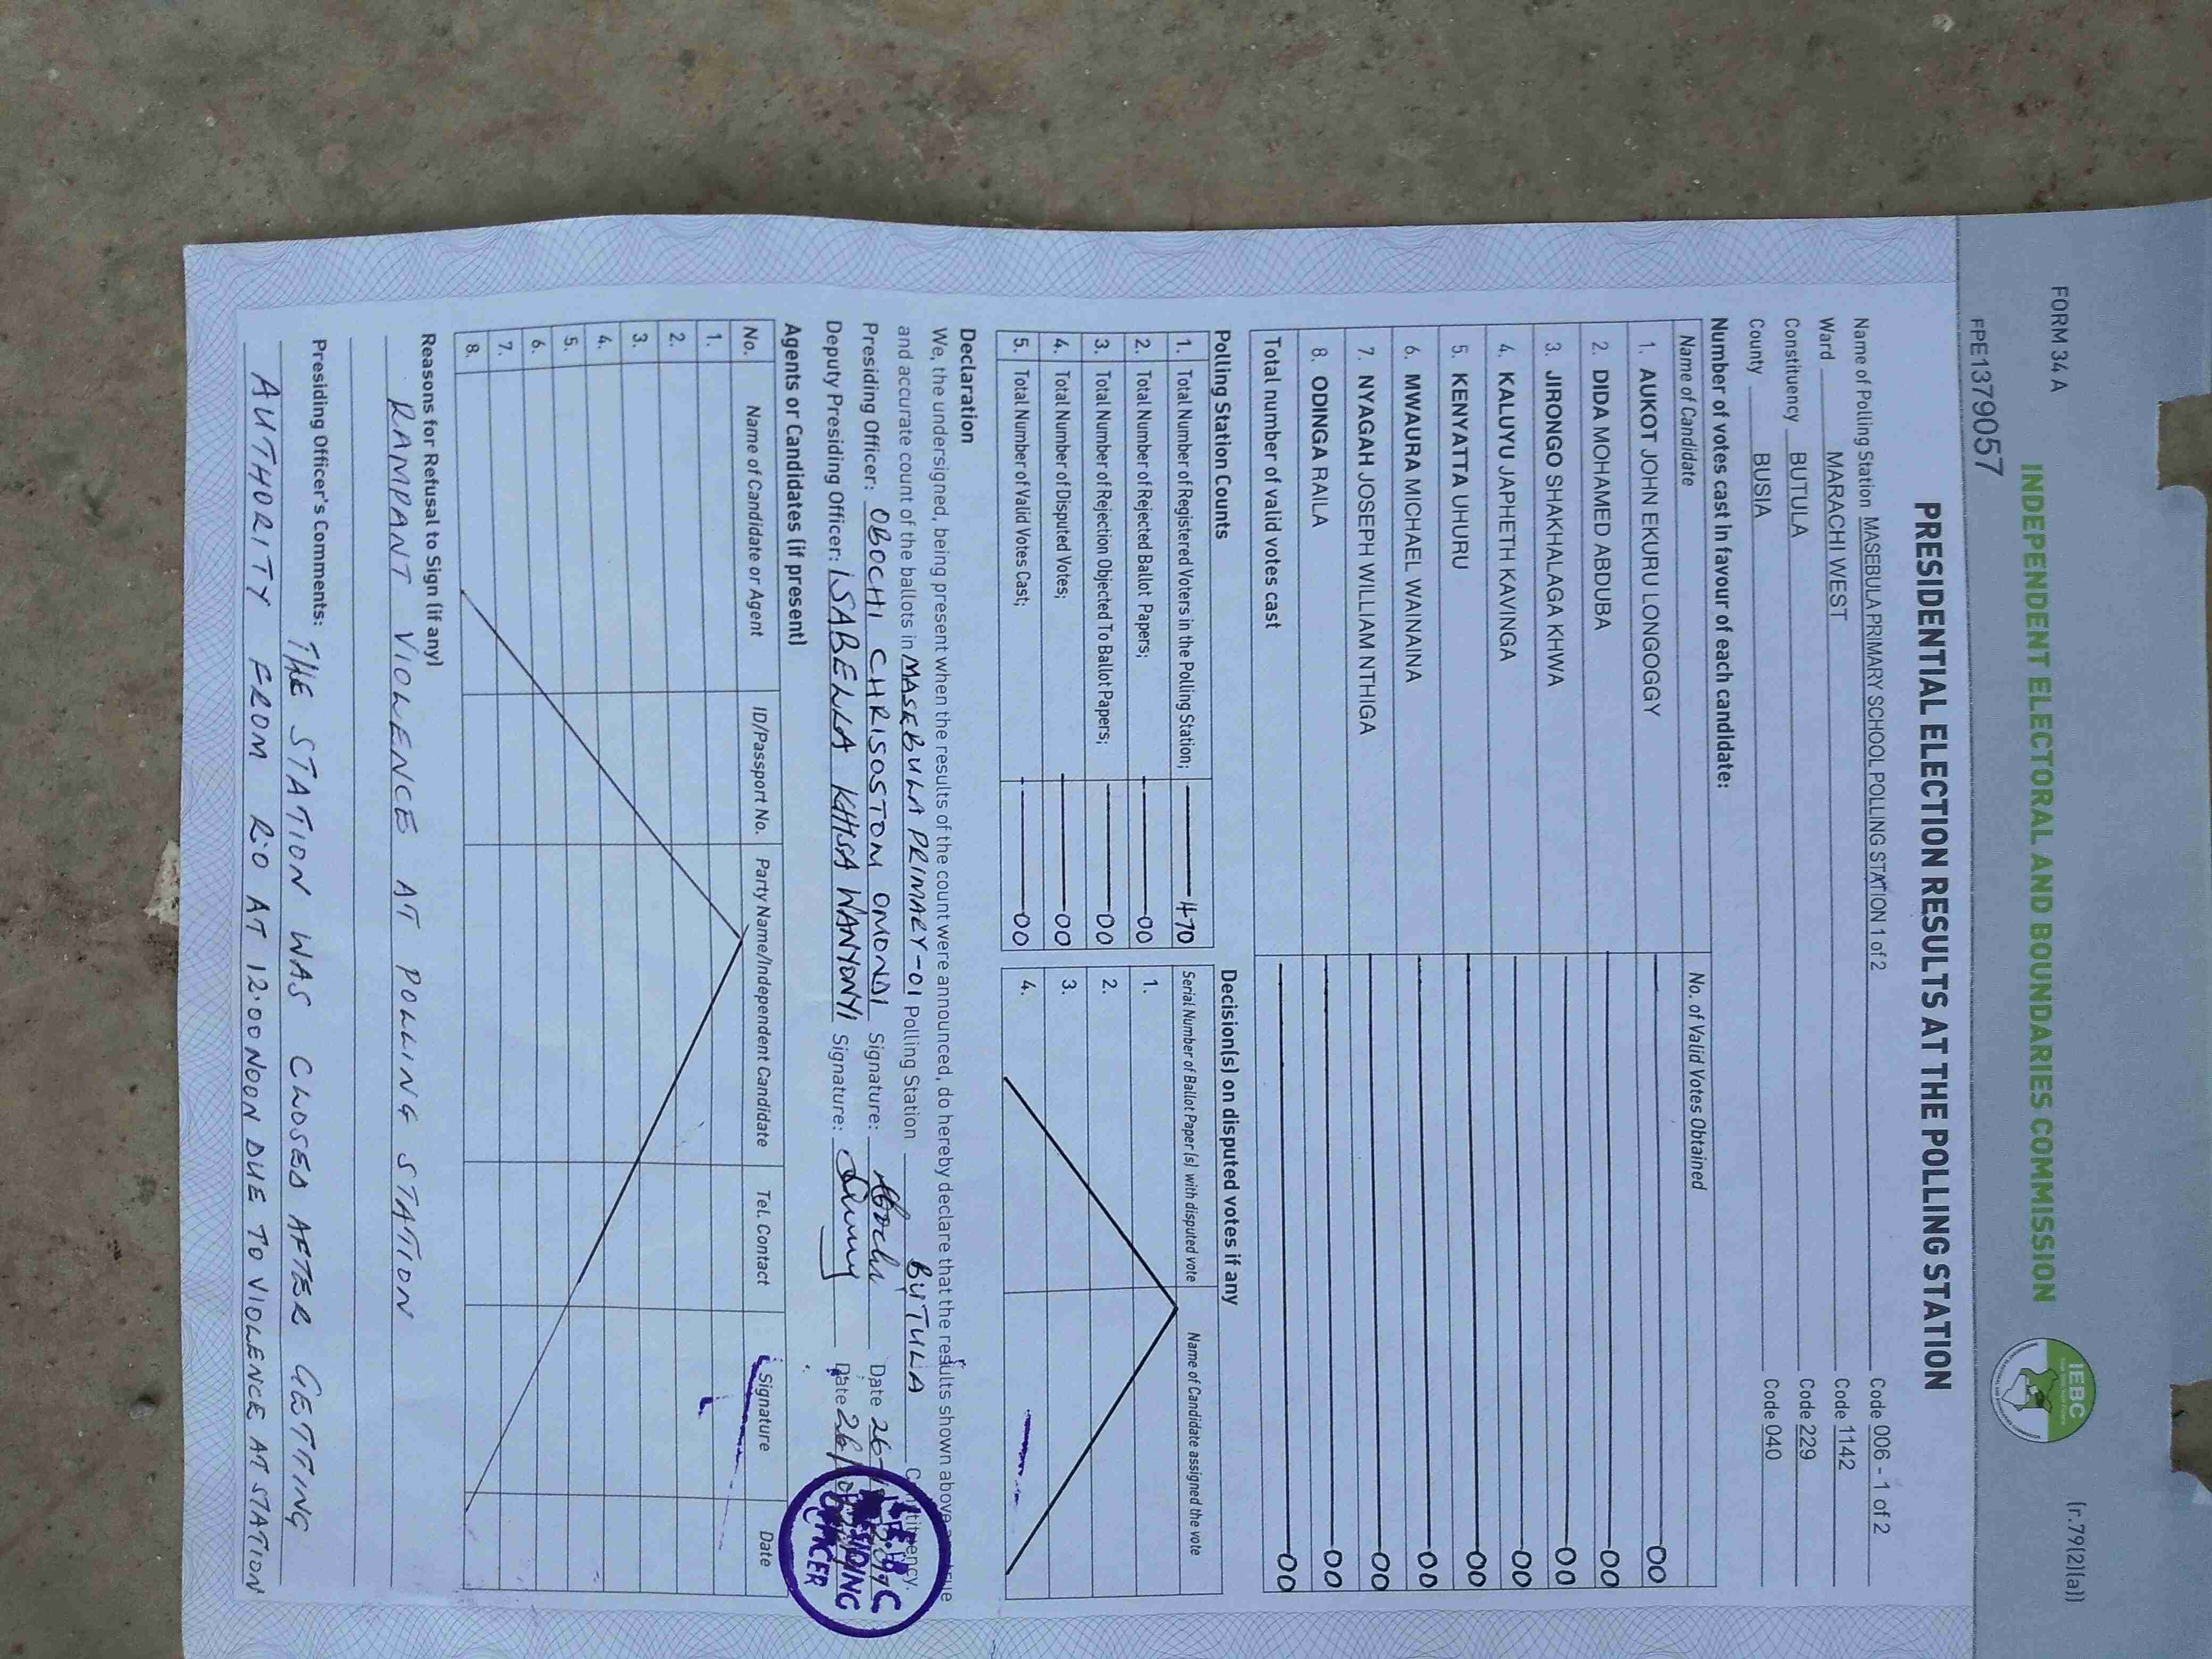 FORM 34 A
(r.79(2)(a))
INDEPENDENT ELECTORAL AND BOUNDARIES COMMISSION
IEBC
FPE1379057
PRESIDENTIAL ELECTION RESULTS AT THE POLLING STATION
Name of Polling Station MASEBULA PRIMARY SCHOOL POLLING STATION 1 of 2 Code 006 - 1 of 2
Ward MARACHI WEST Code 1142
Constituency BUTULA Code 229
County BUSIA Code 040
Number of votes cast in favour of each candidate:
Name of Candidate No. of Valid Votes Obtained
1. AUKOT JOHN EKURU LONGOGGY 00
2. DIDA MOHAMED ABDUBA 00
3. JIRONGO SHAKHALAGA KHWA 00
4. KALUYU JAPHETH KAVINGA 00
5. KENYATTA UHURU 00
6. MWAURA MICHAEL WAINAINA 00
7. NYAGAH JOSEPH WILLIAM NTHIGA 00
8. ODINGA RAILA 00
Total number of valid votes cast 00
Polling Station Counts
1. Total Number of Registered Voters in the Polling Station; 470
2. Total Number of Rejected Ballot Papers; 00
3. Total Number of Rejection Objected To Ballot Papers; 00
4. Total Number of Disputed Votes; 00
5. Total Number of Valid Votes Cast; 00
Decision(s) on disputed votes if any
Serial Number of Ballot Paper(s) with disputed vote Name of Candidate assigned the vote
1.
2.
3.
4.
Declaration
We, the undersigned, being present when the results of the count were announced, do hereby declare that the results shown above a true
and accurate count of the ballots in MASEBULA PRIMARY-01 Polling Station BUTULA Constituency.
Presiding Officer: OBOCHI CHRISOSTOM OMONDI Signature: Date 26
Deputy Presiding Officer: ISABELLA KHISA WANYONYI Signature: Date 26/
PRESIDING
OFFICER
Agents or Candidates (if present)
No. Name of Candidate or Agent ID/Passport No. Party Name/Independent Candidate Tel. Contact Signature Date
1.
2.
3.
4.
5.
6.
7.
8.
Reasons for Refusal to Sign (if any)
RAMPANT VIOLENCE AT POLLING STATION
Presiding Officer's Comments: THE STATION WAS CLOSED AFTER GETTING
AUTHORITY FROM R.O AT 12.00NOON DUE TO VIOLENCE AT STATION